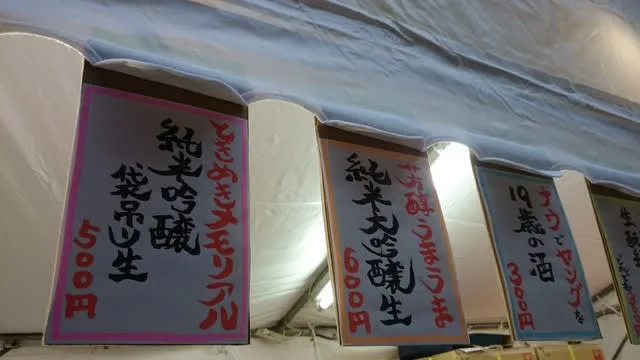 ときめきメモリアル
純米吟醸
袋吊り生
500円
芳醇うまうま
純米大吟醸生
600円
ナウでヤングな
19歳の酒
300円